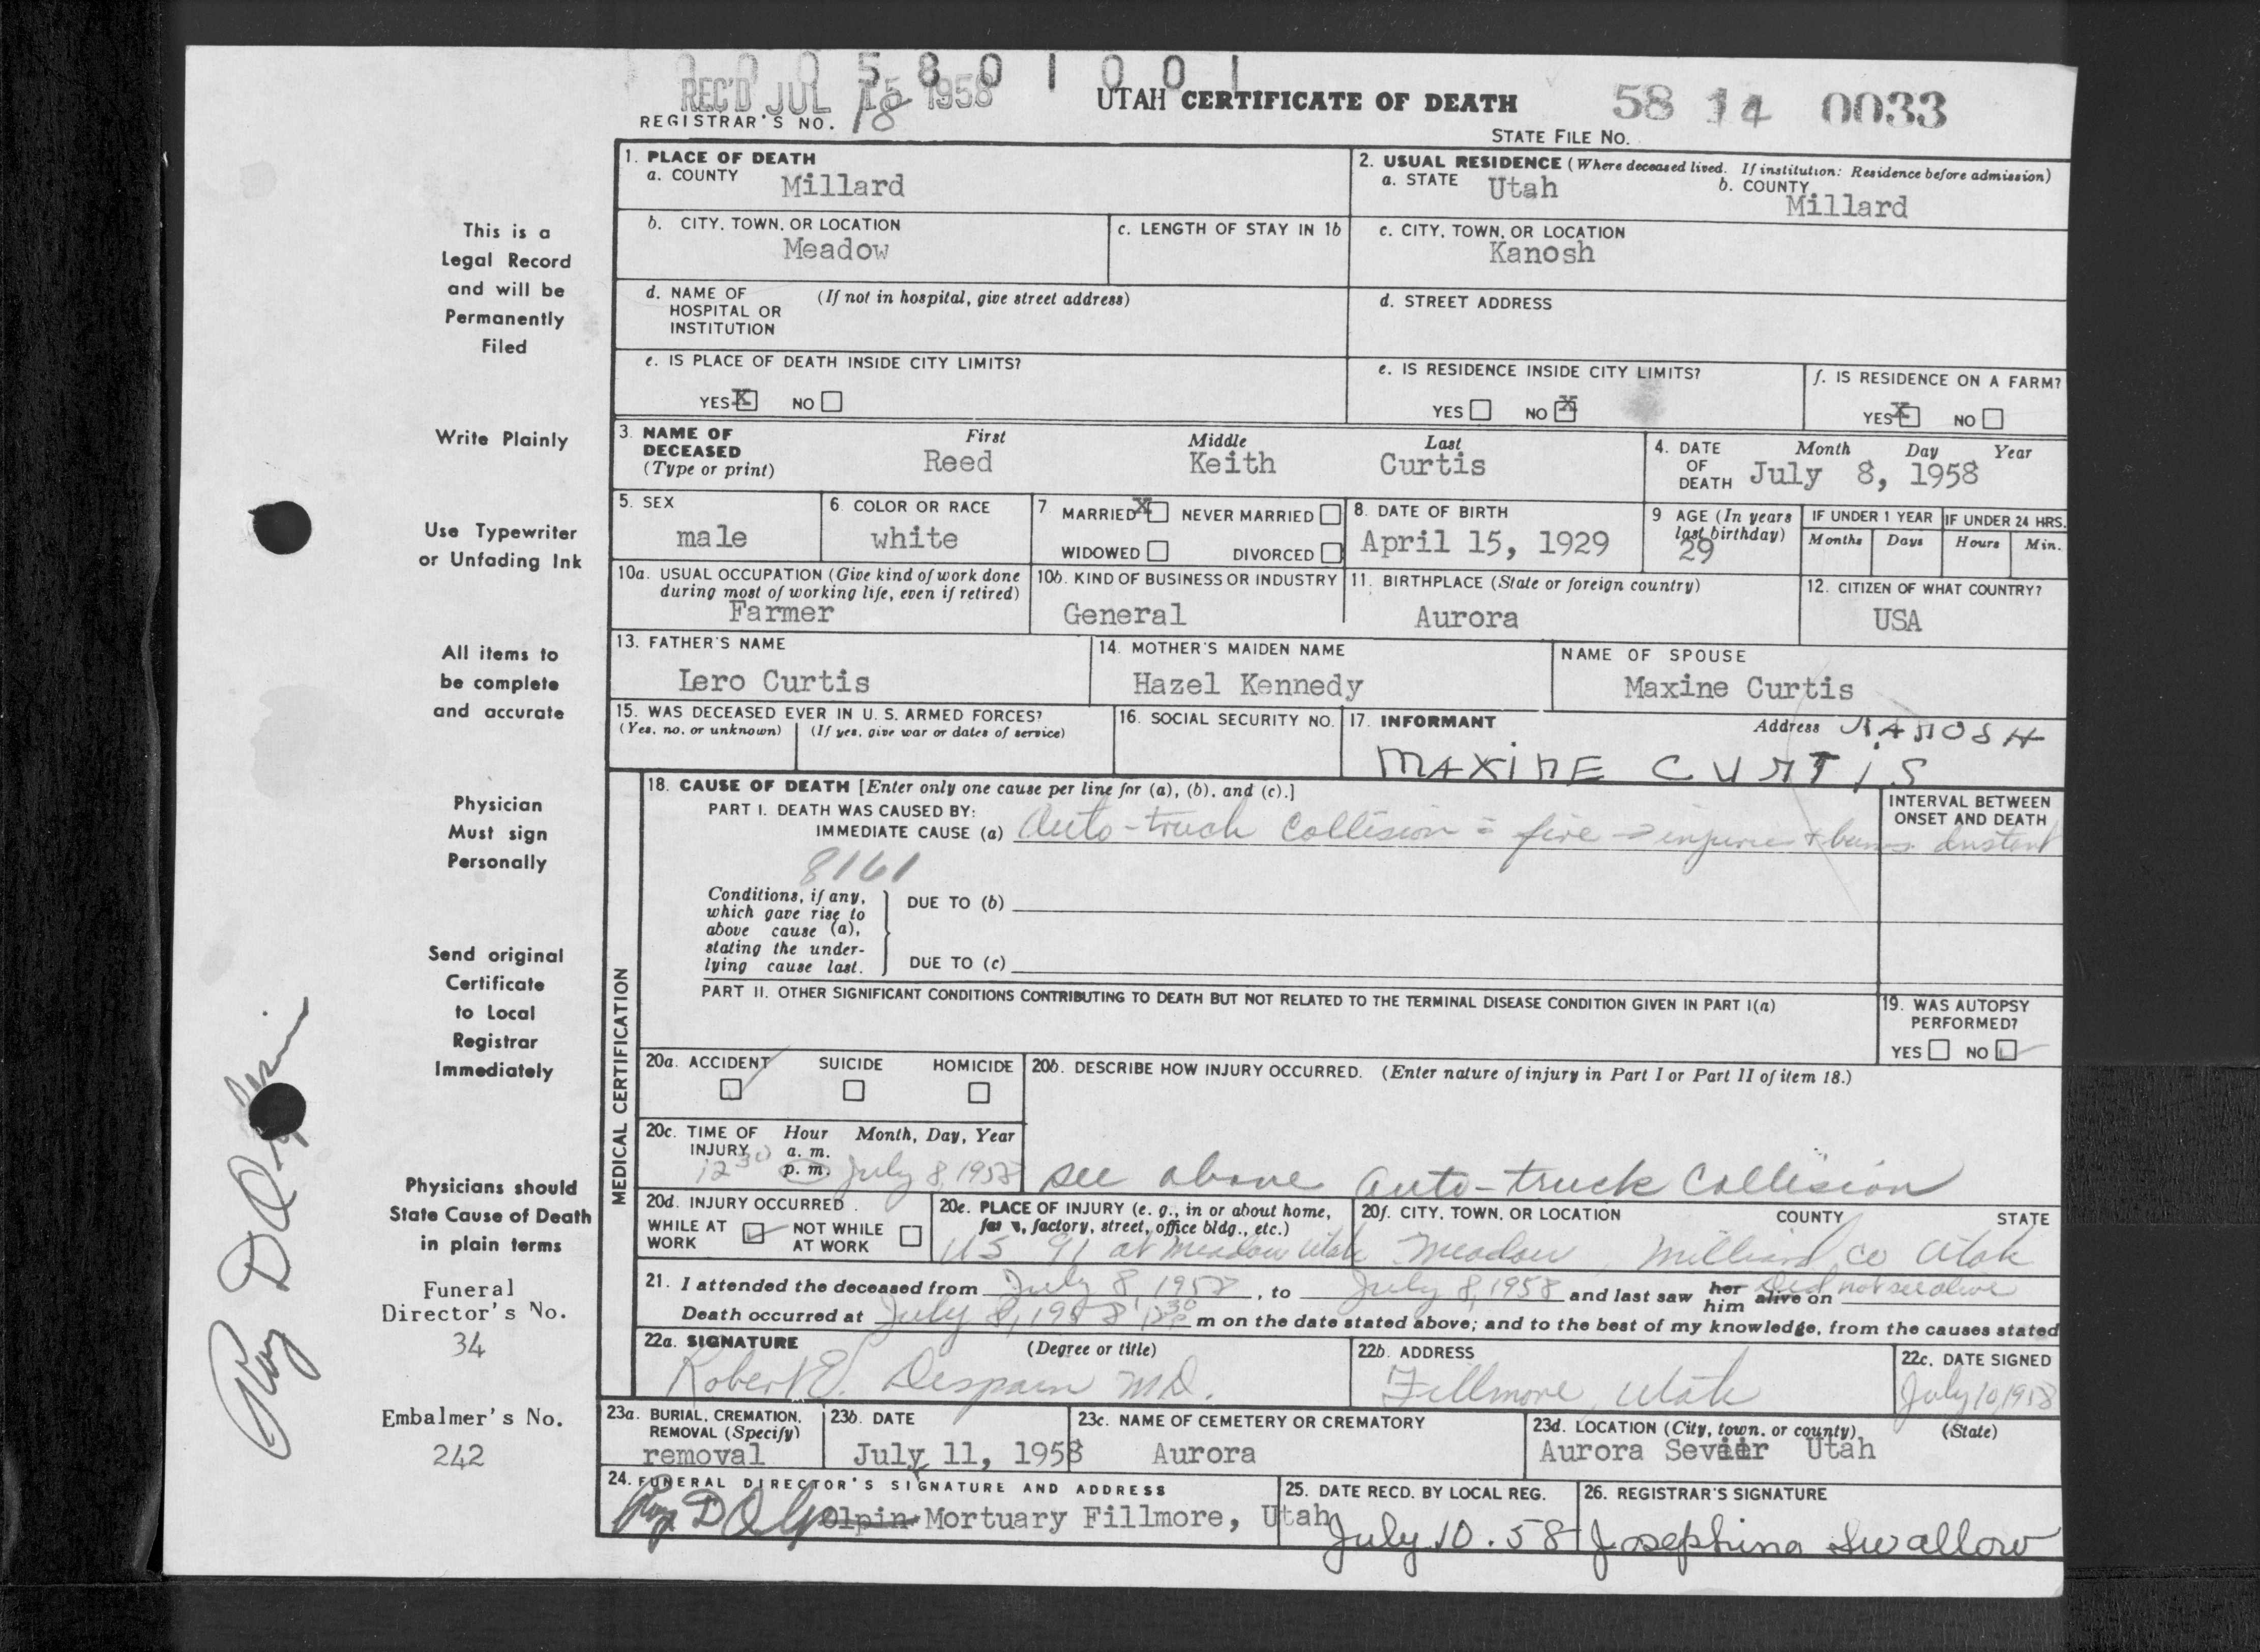 0 0 5 8 0 1 0 0 1
REC'D JUL 15 1958
UTAH CERTIFICATE OF DEATH
58 14 0033
REGISTRAR'S NO. 18
STATE FILE NO.
1. PLACE OF DEATH
a. COUNTY Millard
2. USUAL RESIDENCE (Where deceased lived. If institution: Residence before admission)
a. STATE Utah b. COUNTY Millard
b. CITY, TOWN, OR LOCATION Meadow
c. LENGTH OF STAY IN 1b
c. CITY, TOWN, OR LOCATION Kanosh
d. NAME OF HOSPITAL OR INSTITUTION (If not in hospital, give street address)
d. STREET ADDRESS
e. IS PLACE OF DEATH INSIDE CITY LIMITS?
YES X NO
e. IS RESIDENCE INSIDE CITY LIMITS?
YES NO X
f. IS RESIDENCE ON A FARM?
YES X NO
3. NAME OF DECEASED (Type or print)
First Middle Last
Reed Keith Curtis
4. DATE OF DEATH Month Day Year
July 8, 1958
5. SEX male
6. COLOR OR RACE white
7 MARRIED X NEVER MARRIED
WIDOWED DIVORCED
8. DATE OF BIRTH April 15, 1929
9 AGE (In years last birthday) 29
IF UNDER 1 YEAR Months Days
IF UNDER 24 HRS. Hours Min.
10a. USUAL OCCUPATION (Give kind of work done during most of working life, even if retired)
Farmer
10b. KIND OF BUSINESS OR INDUSTRY
General
11. BIRTHPLACE (State or foreign country)
Aurora
12. CITIZEN OF WHAT COUNTRY?
USA
13. FATHER'S NAME
Lero Curtis
14. MOTHER'S MAIDEN NAME
Hazel Kennedy
NAME OF SPOUSE
Maxine Curtis
15. WAS DECEASED EVER IN U. S. ARMED FORCES?
(Yes, no, or unknown) (If yes, give war or dates of service)
16. SOCIAL SECURITY NO.
17. INFORMANT Address KANOSH
MAXINE CURTIS
MEDICAL CERTIFICATION
18. CAUSE OF DEATH [Enter only one cause per line for (a), (b), and (c).]
PART I. DEATH WAS CAUSED BY:
IMMEDIATE CAUSE (a) Auto-truck Collision fire injuries & burns
INTERVAL BETWEEN ONSET AND DEATH
Instant
8161
Conditions, if any, which gave rise to above cause (a), stating the underlying cause last.
DUE TO (b)
DUE TO (c)
PART II. OTHER SIGNIFICANT CONDITIONS CONTRIBUTING TO DEATH BUT NOT RELATED TO THE TERMINAL DISEASE CONDITION GIVEN IN PART I(a)
19. WAS AUTOPSY PERFORMED?
YES NO
20a. ACCIDENT SUICIDE HOMICIDE
20b. DESCRIBE HOW INJURY OCCURRED. (Enter nature of injury in Part I or Part II of item 18.)
see above auto-truck Collision
20c. TIME OF INJURY Hour Month, Day, Year
12 30 a. m. p. m. July 8, 1958
20d. INJURY OCCURRED
WHILE AT WORK NOT WHILE AT WORK
20e. PLACE OF INJURY (e. g., in or about home, farm, factory, street, office bldg., etc.)
US 91 at Meadow Utah
20f. CITY, TOWN, OR LOCATION COUNTY STATE
Meadow, Millard Co Utah
21. I attended the deceased from July 8, 1958, to July 8, 1958 and last saw her him alive on Did not see alive
Death occurred at July 8, 1958 12 30 p m on the date stated above; and to the best of my knowledge, from the causes stated
22a. SIGNATURE (Degree or title)
Robert E. Despain M.D.
22b. ADDRESS
Fillmore, Utah
22c. DATE SIGNED
July 10, 1958
23a. BURIAL, CREMATION, REMOVAL (Specify)
removal
23b. DATE
July 11, 1958
23c. NAME OF CEMETERY OR CREMATORY
Aurora
23d. LOCATION (City, town, or county) (State)
Aurora Sevier Utah
24. FUNERAL DIRECTOR'S SIGNATURE AND ADDRESS
Olpin Mortuary Fillmore, Utah
25. DATE RECD. BY LOCAL REG.
July 10. 58
26. REGISTRAR'S SIGNATURE
Josephine Swallow
This is a
Legal Record
and will be
Permanently
Filed
Write Plainly
Use Typewriter
or Unfading Ink
All items to
be complete
and accurate
Physician
Must sign
Personally
Send original
Certificate
to Local
Registrar
Immediately
Physicians should
State Cause of Death
in plain terms
Funeral
Director's No.
34
Embalmer's No.
242